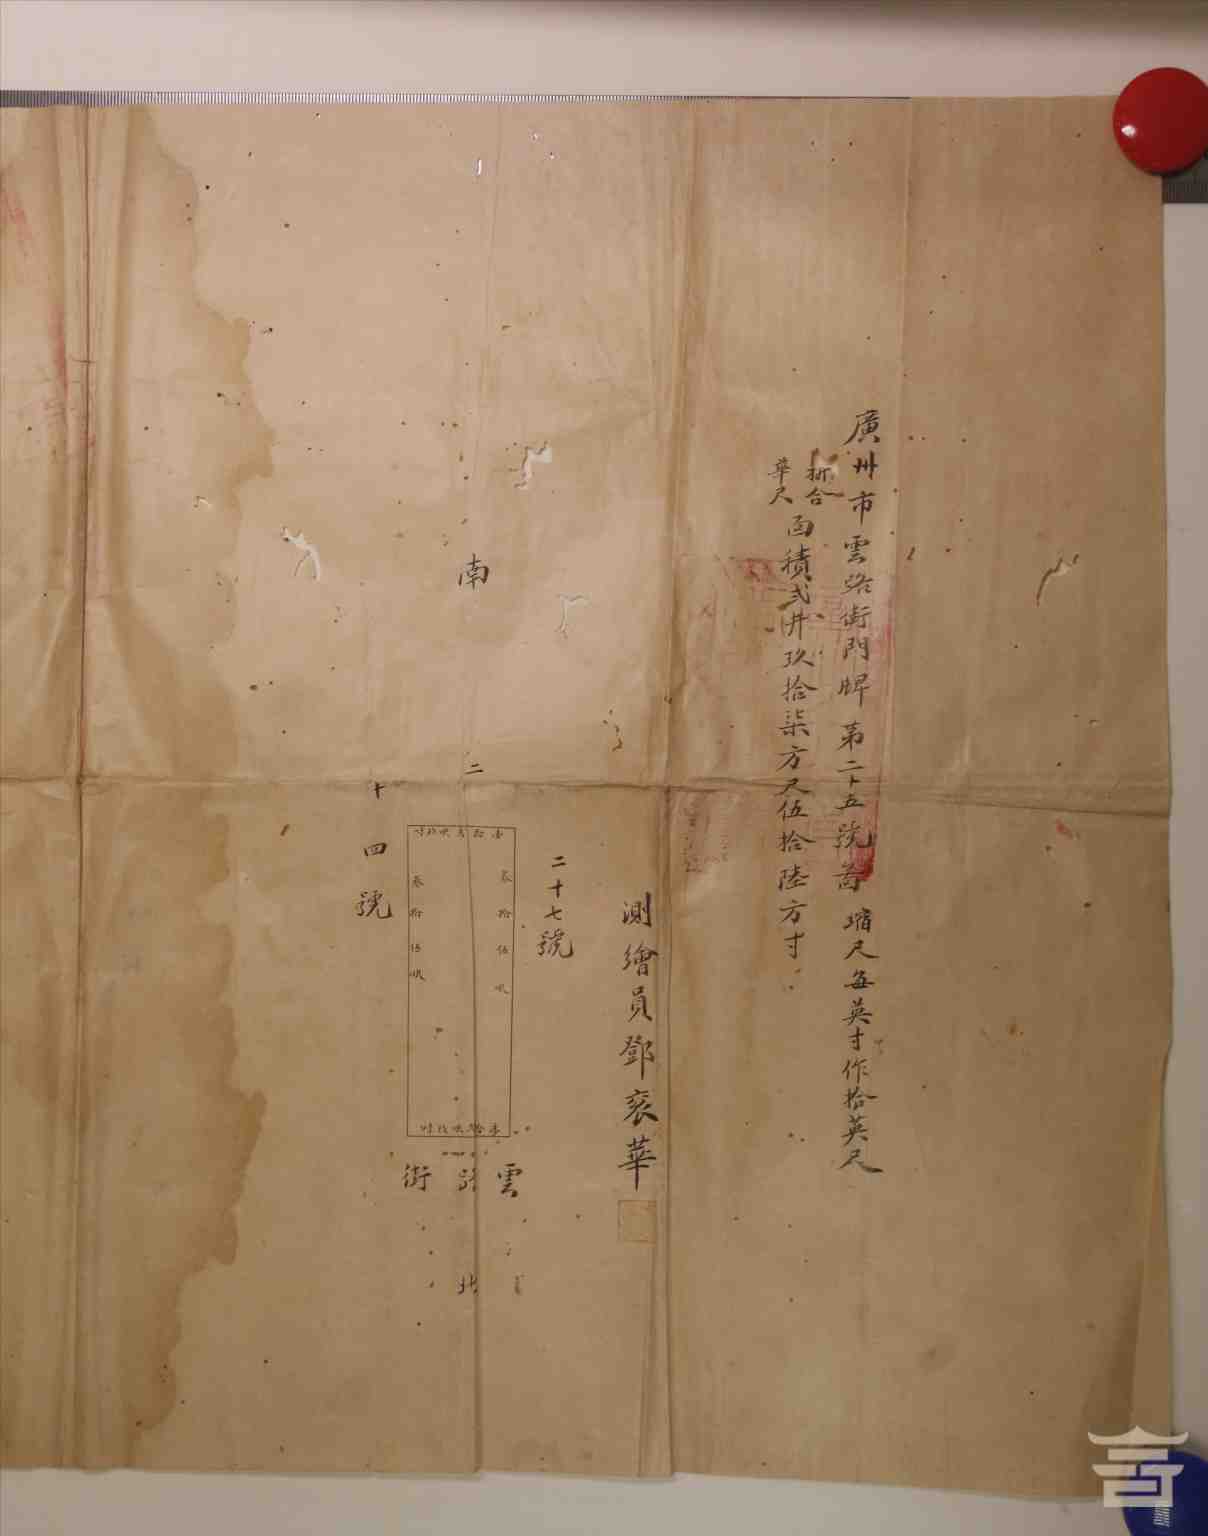 廣州市雲路街門牌第二十五號啚縮尺每英寸作拾英尺
折合
華尺
面積弍井玖拾柒方尺伍拾陸方寸
測繪員鄧袞華
二十七號
南
二
十四號
叁拾伍呎
叁拾伍呎
雲路街
北